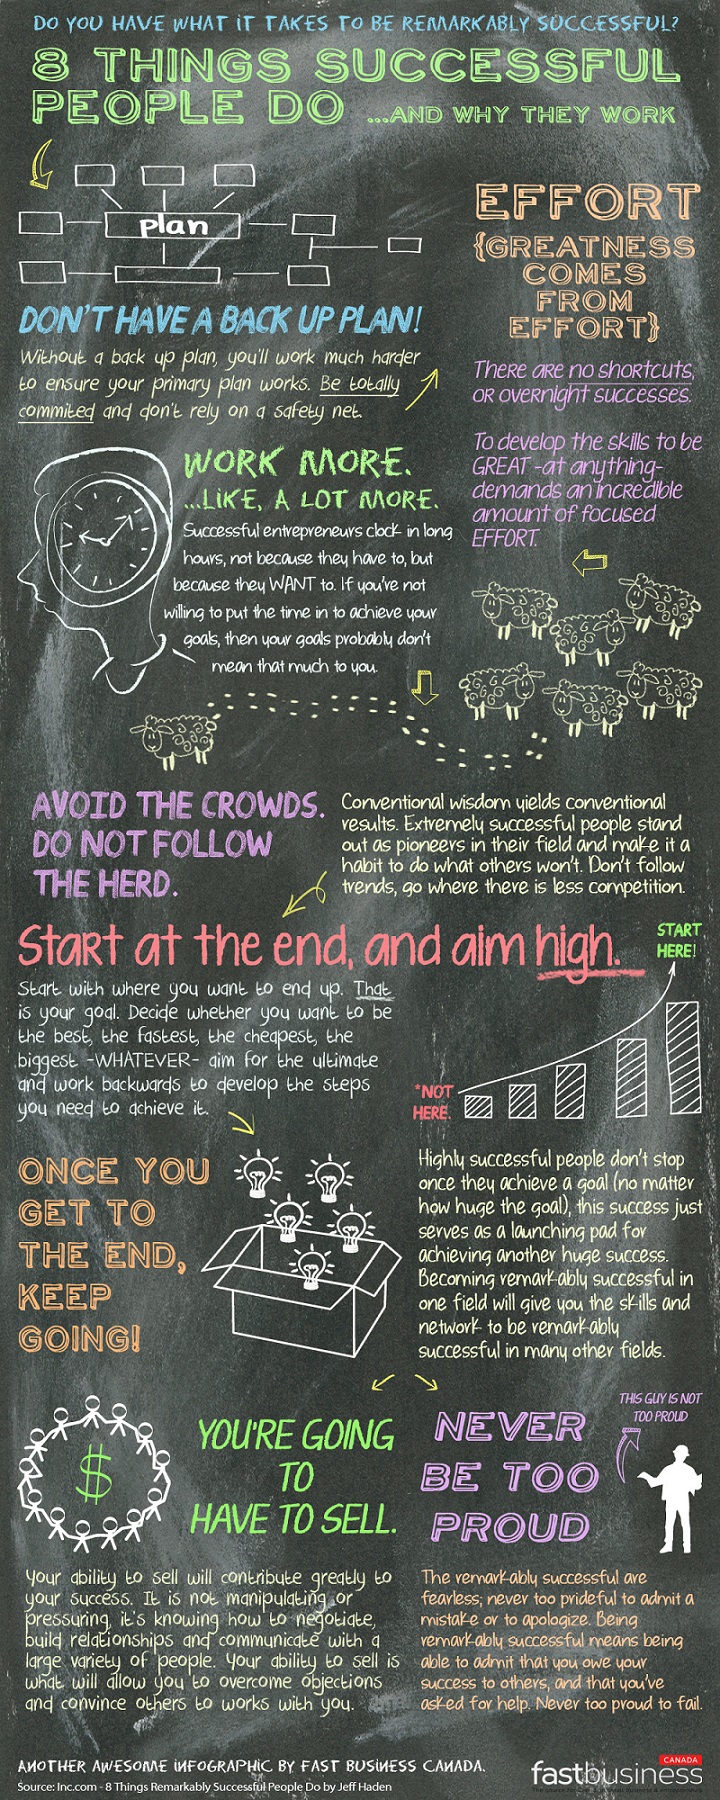 DO YOU HAVE WHAT IT TAKES TO BE REMARKABLY SUCCESSFUL?
8 THINGS SUCCESSFUL
PEOPLE DO ...AND WHY THEY WORK
plan
DON'T HAVE A BACK UP PLAN!
Without a back up plan, you'll work much harder
to ensure your primary plan works. Be totally
commited and don't rely on a safety net.
EFFORT
{GREATNESS
COMES
FROM
EFFORT}
There are no shortcuts,
or overnight successes.
To develop the skills to be
GREAT -at anything-
demands an incredible
amount of focused
EFFORT.
WORK MORE.
...LIKE, A LOT MORE.
Successful entrepreneurs clock in long
hours, not because they have to, but
because they WANT to. If you're not
willing to put the time in to achieve your
goals, then your goals probably don't
mean that much to you.
AVOID THE CROWDS.
DO NOT FOLLOW
THE HERD.
Conventional wisdom yields conventional
results. Extremely successful people stand
out as pioneers in their field and make it a
habit to do what others won't. Don't follow
trends, go where there is less competition.
Start at the end, and aim high.
Start with where you want to end up. That
is your goal. Decide whether you want to be
the best, the fastest, the cheapest, the
biggest -WHATEVER- aim for the ultimate
and work backwards to develop the steps
you need to achieve it.
START
HERE!
*NOT
HERE.
ONCE YOU
GET TO
THE END,
KEEP
GOING!
Highly successful people don't stop
once they achieve a goal (no matter
how huge the goal), this success just
serves as a launching pad for
achieving another huge success.
Becoming remarkably successful in
one field will give you the skills and
network to be remarkably
successful in many other fields.
$
YOU'RE GOING
TO
HAVE TO SELL.
Your ability to sell will contribute greatly to
your success. It is not manipulating or
pressuring, it's knowing how to negotiate,
build relationships and communicate with a
large variety of people. Your ability to sell is
what will allow you to overcome objections
and convince others to works with you.
NEVER
BE TOO
PROUD
THIS GUY IS NOT
TOO PROUD
The remarkably successful are
fearless; never too prideful to admit a
mistake or to apologize. Being
remarkably successful means being
able to admit that you owe your
success to others, and that you've
asked for help. Never too proud to fail.
ANOTHER AWESOME INFOGRAPHIC BY FAST BUSINESS CANADA.
Source: Inc.com - 8 Things Remarkably Successful People Do by Jeff Haden
CANADA
fastbusiness